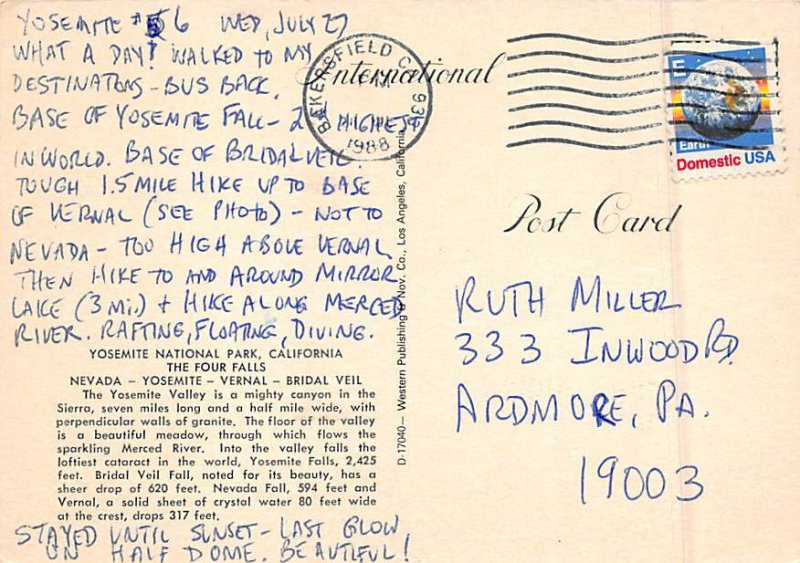 YOSEMITE #56 WED, JULY 27
WHAT A DAY! WALKED TO MY
DESTINATIONS - BUS BACK.
BASE OF YOSEMITE FALL - 2nd HIGHEST
IN WORLD. BASE OF BRIDALVEIL.
TOUGH 1.5 MILE HIKE UP TO BASE
OF VERNAL (SEE PHOTO) - NOT TO
NEVADA - TOO HIGH ABOVE VERNAL.
THEN HIKE TO AND AROUND MIRROR
LAKE (3 MI.) + HIKE ALONG MERCED
RIVER. RAFTING, FLOATING, DIVING.
YOSEMITE NATIONAL PARK, CALIFORNIA
THE FOUR FALLS
NEVADA – YOSEMITE – VERNAL – BRIDAL VEIL
The Yosemite Valley is a mighty canyon in the
Sierra, seven miles long and a half mile wide, with
perpendicular walls of granite. The floor of the valley
is a beautiful meadow, through which flows the
sparkling Merced River. Into the valley falls the
loftiest cataract in the world, Yosemite Falls, 2,425
feet. Bridal Veil Fall, noted for its beauty, has a
sheer drop of 620 feet. Nevada Fall, 594 feet and
Vernal, a solid sheet of crystal water 80 feet wide
at the crest, drops 317 feet.
STAYED UNTIL SUNSET - LAST GLOW
ON HALF DOME. BEAUTIFUL!
D-17040— Western Publishing & Nov. Co., Los Angeles, California
International
Post Card
BAKERSFIELD CA 933
PM
1988
E
Earth
Domestic USA
RUTH MILLER
333 INWOOD RD.
ARDMORE, PA.
19003